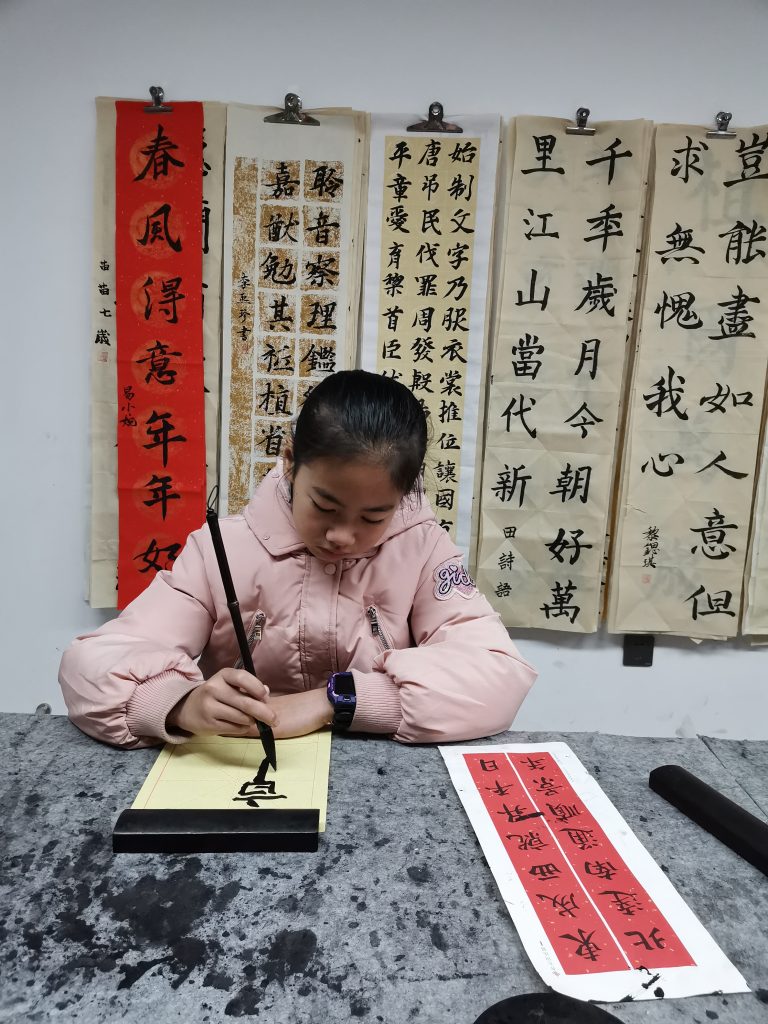 春風得意年年好
苗苗七歲
聆音察理鑑
嘉猷勉其祗植省
始制文字乃服衣裳推位讓國
唐吊民伐罪周發殷
平章愛育黎首臣伏
千年歲月今朝好萬
里江山當代新
田詩語
豈能盡如人意但
求無愧我心
東成西就升平日
北達南通順景年